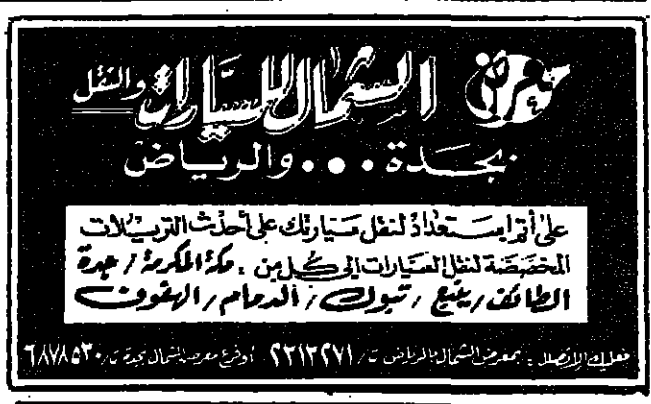 معرض الشمال للسيارات والنقل
بجدة ... والرياض
على أتم استعداد لنقل سيارتك على أحدث التريلات
المخصصة لنقل السيارات إلى كل من . مكة المكرمة / جدة
الطائف / ينبع / تبوك / الدمام / الهفوف
فعليك الإتصال : بمعرض الشمال بالرياض ت / ٢٣١٢٢٧١ أو فرع معرض الشمال بجدة ت / ٦٨٧٨٥٣٠